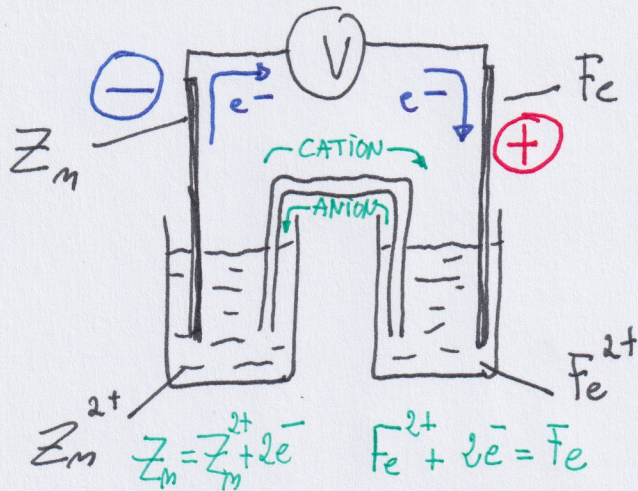 V
−
e− e−
Fe
Zn
+
CATION
ANION
Zn²⁺
Fe²⁺
Zn = Zn²⁺ + 2e⁻
Fe²⁺ + 2e⁻ = Fe